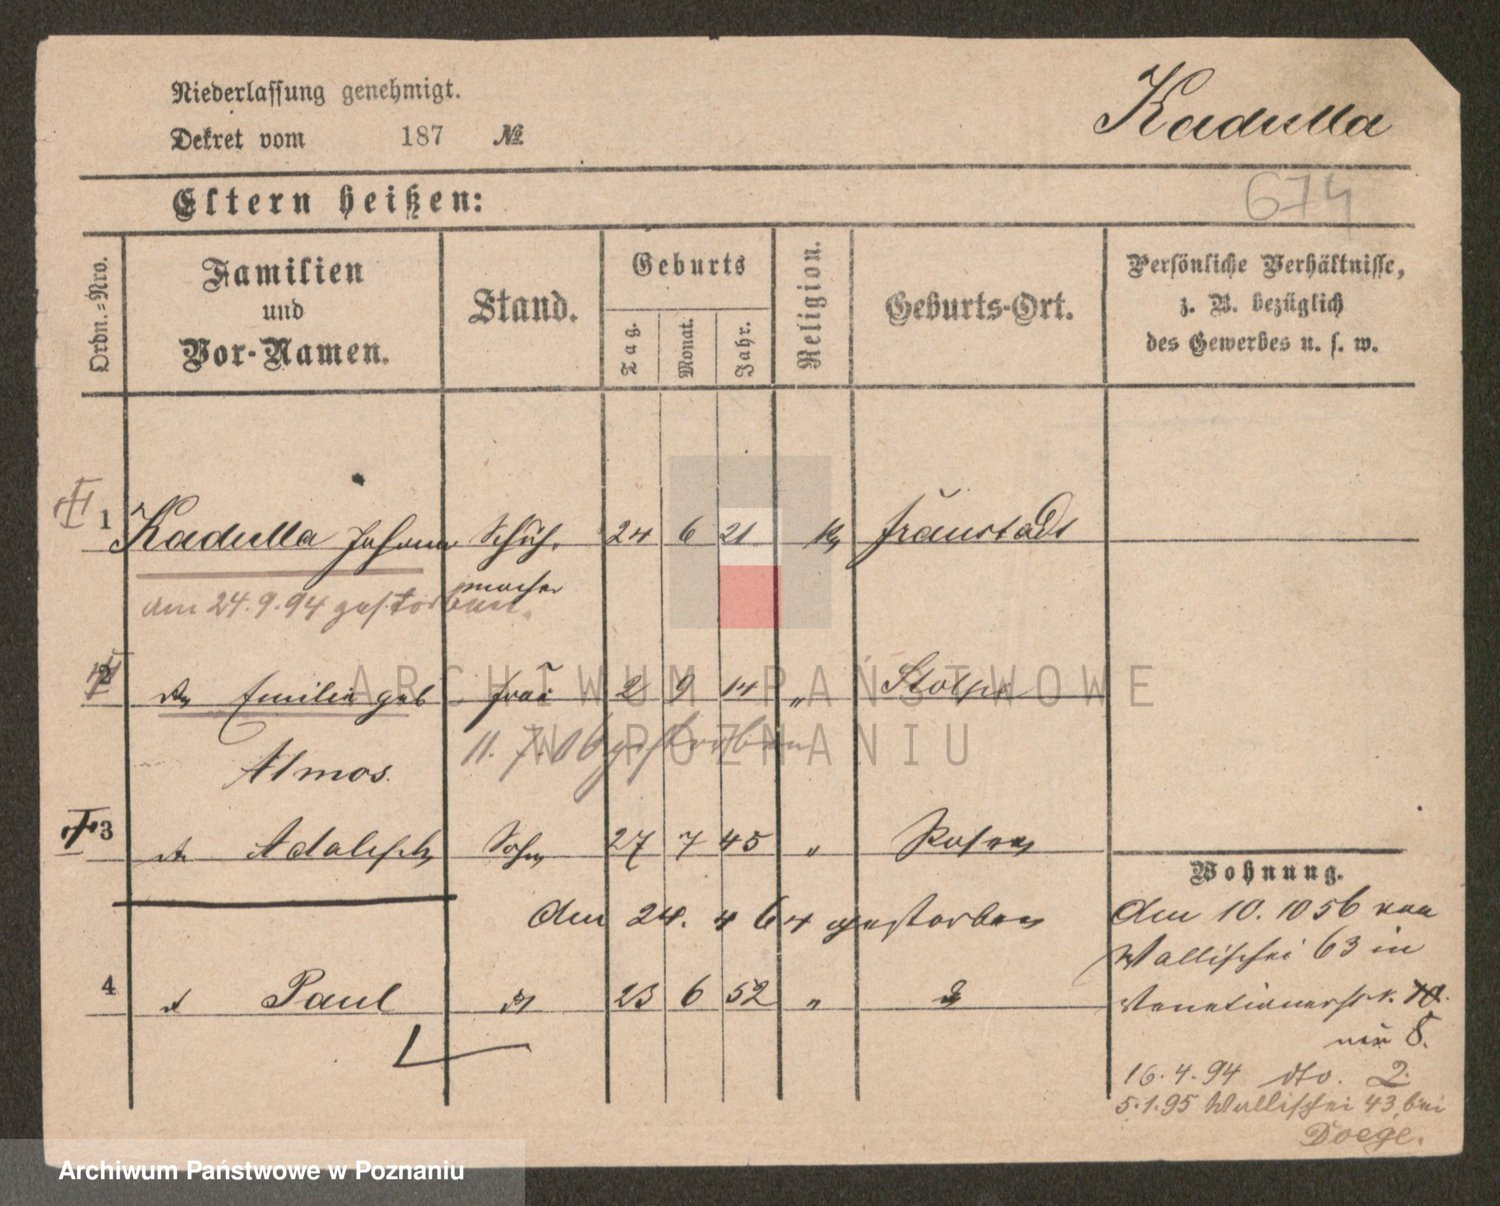 Niederlassung genehmigt.
Dekret vom 187 №
Kadulla
674
Eltern heißen:
Ordn.=Nro.
Familien
und
Vor-Namen.
Stand.
Geburts
Tag.
Monat.
Jahr.
Religion.
Geburts-Ort.
Persönliche Verhältnisse,
z. B. bezüglich
des Gewerbes u. s. w.
1 Kadulla Johann Schuh- 24 6 21 Fraustadt
macher
am 24.9.94 gestorben.
2 Emilie geb Frau 2 9 14 " Stolpe
Atmos.
gestorben
3 Adolph Sohn 27 7 45 " Posen
am 24. 4 64 gestorben
4 Paul 23 6 52 "
Wohnung.
Am 10. 10 56 von
Wallischei 63 in
Venetianerstr.
8.
16.4.94 dto. 2.
5.1.95 Wallischei 43, bei
Doege.
ARCHIWUM PAŃSTWOWE
W POZNANIU
Archiwum Państwowe w Poznaniu